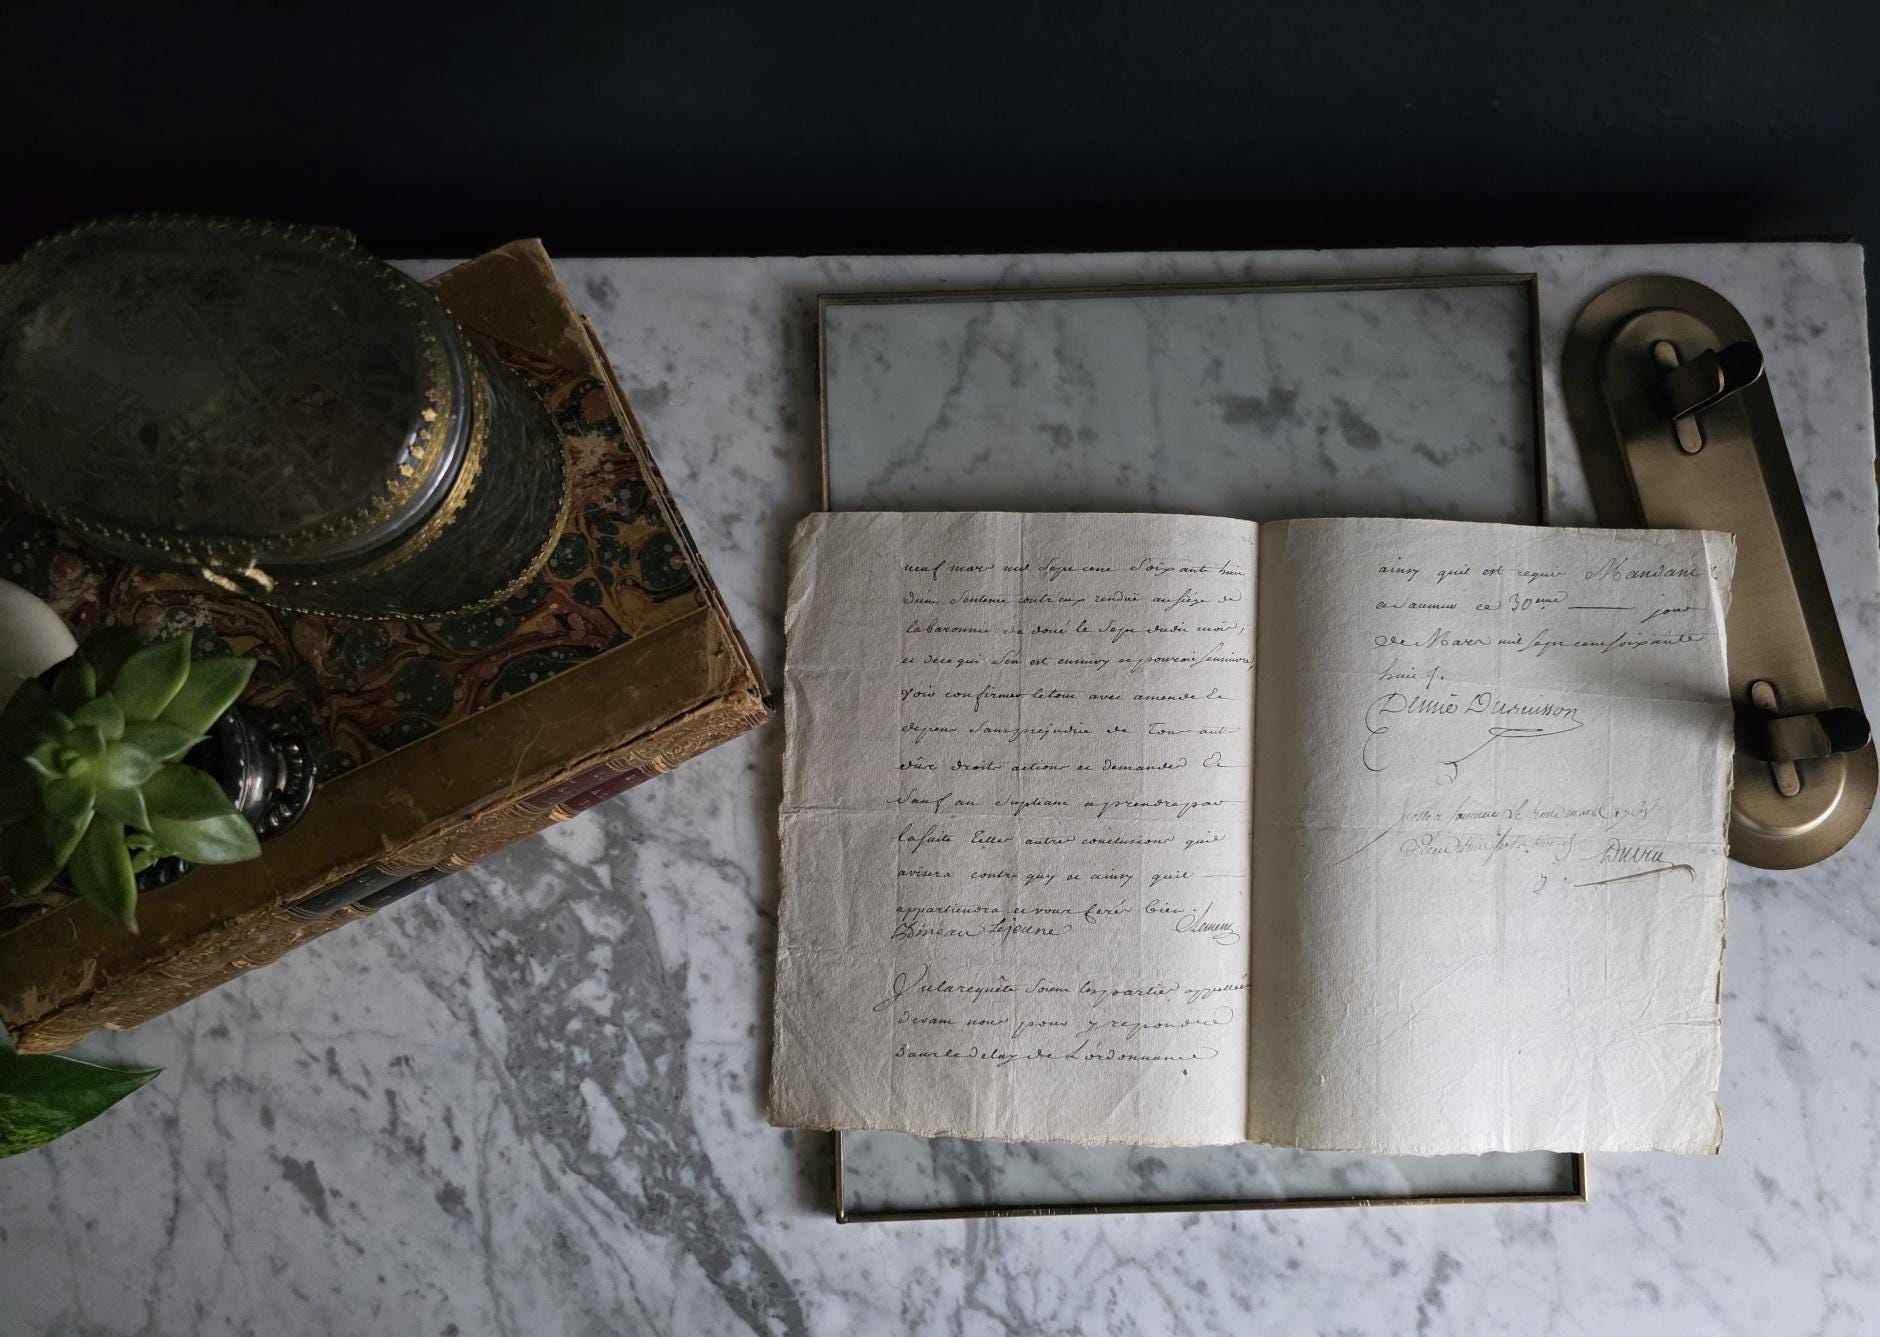 neuf mars mil Sept cent Soixante huit
d'une Sentence contre eux rendue au siége de
la baronnie de doué le Sept dudit mois,
et de ce qui s'en est ensuivy et pouroit sensuivre,
voir confirmer le tout avec amende Et
depens Sans prejudice de Tous autres
dûs droits actions et demandes Et
Sauf au Supliant a prendre par
la suite telles autres conclusions quil
avisera contre qui et ainsy quil
appartiendra et vous ferés bien.
Lejeune
Vu la requête Soient les parties appellées
devant nous pour y repondre
dans le delay de L'ordonnance
ainsy quil est requis Mandant &
a Saumur ce 30eme jour
de Mars mil sept cent soixante
huit